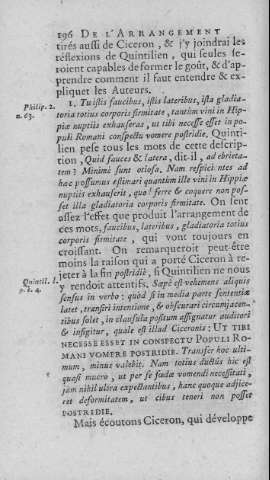 196 DE L'ARRANGEMENT
tirés aussi de Ciceron, & j'y joindrai les
réflexions de Quintilien, qui seules se-
roient capables de former le goût, & d'ap-
prendre comment il faut entendre & ex-
pliquer les Auteurs.
Philip. 2.
n. 63.
1. Tu istis faucibus, istis lateribus, ista gladia-
toria totius corporis firmitate, tantùm vini in Hip-
piæ nuptiis exhauseras, ut tibi necesse esset in po-
puli Romani conspectu vomere postridie. Quinti-
lien pese tous les mots de cette descri-
ption, Quid fauces & latera, dit-il, ad ebrieta-
tem? Minimè sunt otiosa. Nam respicientes ad
hæc possumus estimari quantùm ille vini in Hippiæ
nuptiis exhauserit, quod ferre & coquere non pos-
set illa gladiatoria corporis firmitate. On sent
assez l'effet que produit l'arrangement de
ces mots, faucibus, lateribus, gladiatoria totius
corporis firmitate, qui vont toujours en
croissant. On remarqueroit peut-être
moins la raison qui a porté Ciceron à re-
jeter à la fin postridiè, si Quintilien ne nous
Quintil. l.
9. c. 4.
y rendoit attentifs. Sæpè est vehemens aliquis
sensus in verbo: quod si in media parte sententiæ
latet, transiri intentione, & obscurari circumjacen-
tibus solet, in clausula positum assignatur auditori
& infigitur, quale est illud Ciceronis: UT TIBI
NECESSE ESSET IN CONSPECTU POPULI RO-
MANI VOMERE POSTRIDIE. Transfer hoc ulti-
mum, minus valebit. Nam totius ductûs hic est
quasi mucro, ut per se fœdæ vomendi necessitati,
jam nihil ultra expectantibus, hanc quoque adjice-
ret deformitatem, ut cibus teneri non posset
POSTRIDIE.
Mais écoutons Ciceron, qui développe